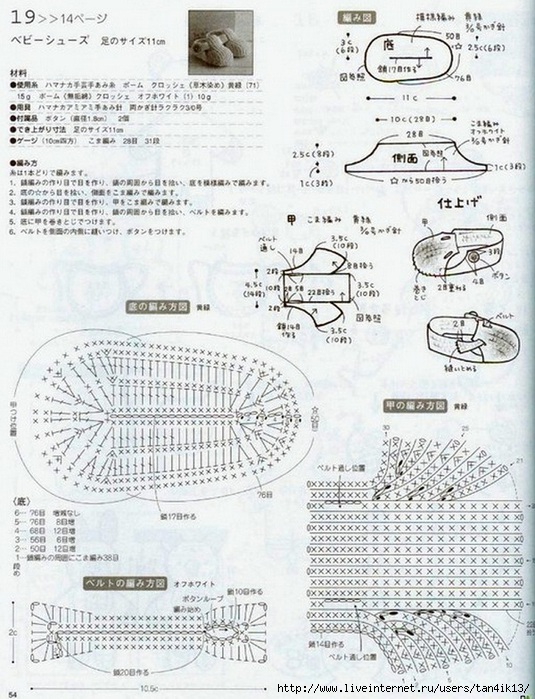 19>>14ページ
ベビーシューズ 足のサイズ11cm
材料
●使用糸 ハマナカ手芸手あみ糸 ポーム クロッシェ《草木染め》黄緑（71）
15g ポーム《無垢綿》クロッシェ オフホワイト（1）10g
●用具 ハマナカアミアミ手あみ針 両かぎ針ラクラク3/0号
●付属品 ボタン（直径1.8cm） 2個
●でき上がり寸法 足のサイズ11cm
●ゲージ（10cm四方） こま編み 28目 31段
●編み方
糸は1本どりで編みます。
1. 鎖編みの作り目で目を作り、鎖の周囲から目を拾い、底を模様編みで編みます。
2. 底の☆から目を拾い、側面をこま編みで編みます。
3. 鎖編みの作り目で目を作り、甲をこま編みで編みます。
4. 鎖編みの作り目で目を作り、鎖の周囲から目を拾い、ベルトを編みます。
5. 底に甲を巻きとじでつけます。
6. ベルトを側面の内側に縫いつけ、ボタンをつけます。
編み図
模様編み 黄緑
3/0号かぎ針
3c
(6段)
底
50目
2.5c(6段)
鎖17目作る
図参照
76目
11c
10c(28目)
28目
こま編み
オフホワイト
3/0号かぎ針
2.5c(8段)
側面
図参照
1c(3段)
☆から50目拾う
1c(3段)
甲 こま編み 黄緑
3/0号かぎ針
ベルト通し
14目
3.5c
(10段)
8目拾う
2段
4.5c
(14段)
10段
2段
28目
22目拾う
3.5c
(10段)
図参照
鎖14目作る
3.5c
(10段)
仕上げ
甲
側面
3段
ボタン
4目
巻きとじ
2目重ねる
ベルト
2目
縫いとめる
底の編み方図 黄緑
甲つけ位置
76目
鎖17目作る
〈底〉
6… 76目 増減なし
5… 76目 8目増
4… 68目 12目増
3… 56目 6目増
2… 50目 12目増
1…鎖編みの周囲にこま編み38目
段 め
甲の編み方図 黄緑
30
25
21
ベルト通し位置
鎖14目作る
ベルト通し位置
ベルトの編み方図 オフホワイト
鎖10目作る
ボタンループ
編み始め
2c
鎖20目作る
10.5c
54
http://www.liveinternet.ru/users/tan4ik13/